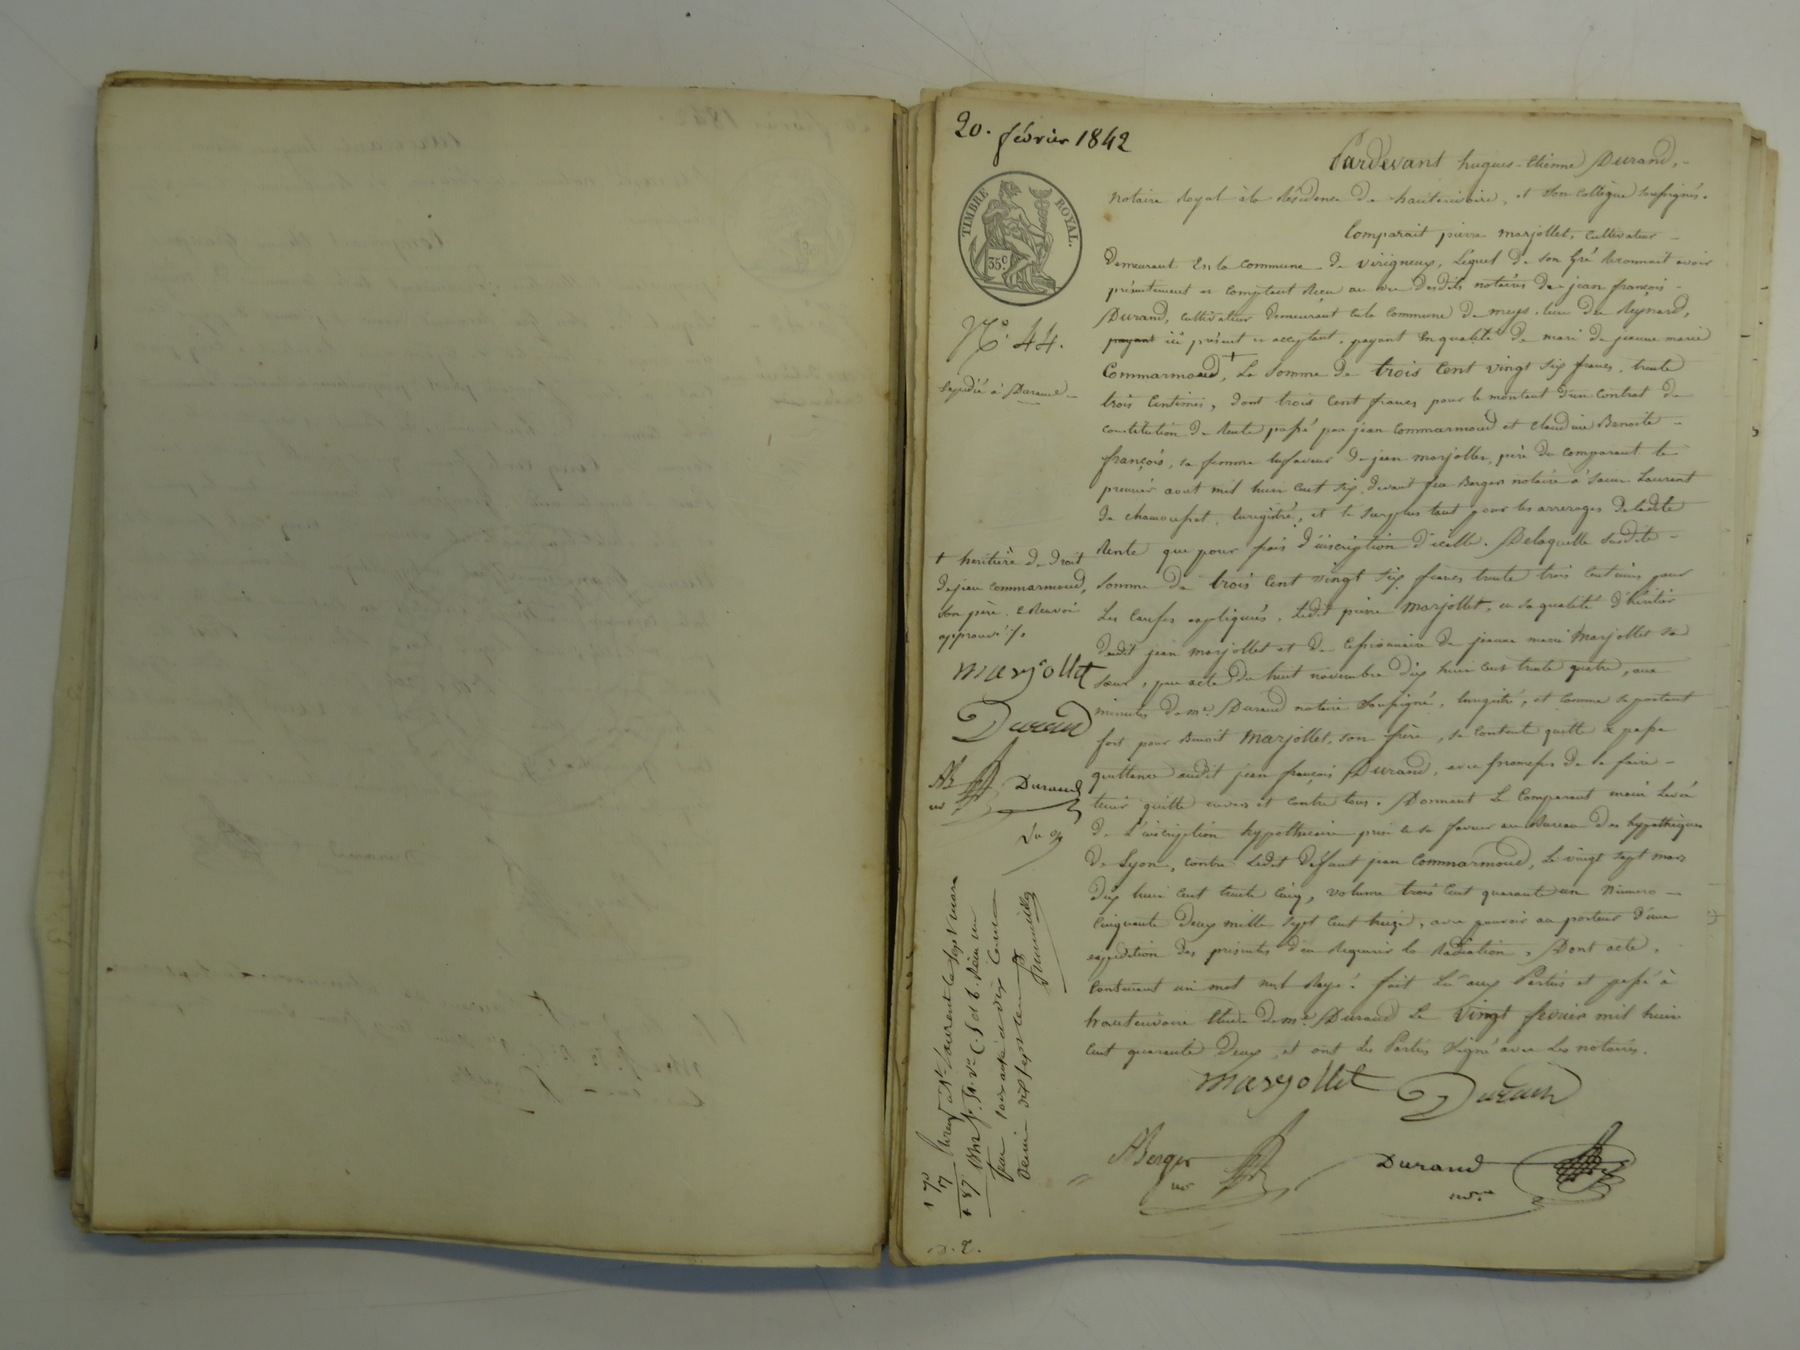 20. février 1842
TIMBRE ROYAL.
35 c
N.° 44.
Expédié à Durand
Pardevant hugues-Etienne Durand,
notaire royal à la Résidence de hauterivoire, et son collègue soussignés.
Comparait pierre marjollet, cultivateur
demeurant en la commune de virigneux, lequel de son gré reconnait avoir
présentement et comptant reçu au vu desdits notaires de jean françois
Durand, cultivateur demeurant en la commune de meys, lieu du Reynard,
payant ici présent et acceptant, payant en qualité de mari de jeanne marie
Commarmond, + la somme de trois cent vingt six francs, trente
trois centimes, dont trois cent francs pour le montant d'un contrat de
constitution de rente passé par jean Commarmond et claudine Benoite
françois, sa femme enfaveur de jean marjollet, père du comparant le
premier aout mil huit cent six, devant feu Berger notaire à Saint Laurent
de chamousset, enregistré, et le surplus tant pour les arrerages de ladite
rente que pour frais d'inscription d'icelle. De laquelle susdite
somme de trois cent vingt six francs trente trois centimes pour
les causes expliquées, ledit pierre marjollet, en sa qualité d'héritier
dudit jean marjollet et de cessionnaire de jeanne marie Marjollet sa
sœur, par acte du huit novembre dix huit cent trente quatre, aux
minutes de me. Durand notaire soussigné, enregistré, et comme se portant
fort pour Benoit Marjollet, son frère, se contente quitte & passe
quittance audit jean françois Durand, avec promesse de le faire
tenir quitte envers et contre tous. Donnant le comparant main levée
de l'inscription hypothécaire prise en sa faveur au Bureau des hypothèques
de Lyon, contre ledit deffunt jean Commarmond, le vingt sept mars
dix huit cent trente cinq, volume trois cent quarante un numero
cinquante deux mille sept cent treize, avec pouvoir au porteur d'une
expédition des présentes d'en requerir la radiation, Dont acte,
contenant un mot nul rayé: fait lu aux Parties et passé à
hauterivoire Etude de me. Durand le vingt fevrier mil huit
cent quarante deux, et ont les Parties signé avec les notaires.
marjollet Durand
ABerger
nre
Durand
nore
+ héritière de droit
de jean commarmond,
son père. Renvoi
approuvé ./.
marjollet
Durand
AB
nre
Durand